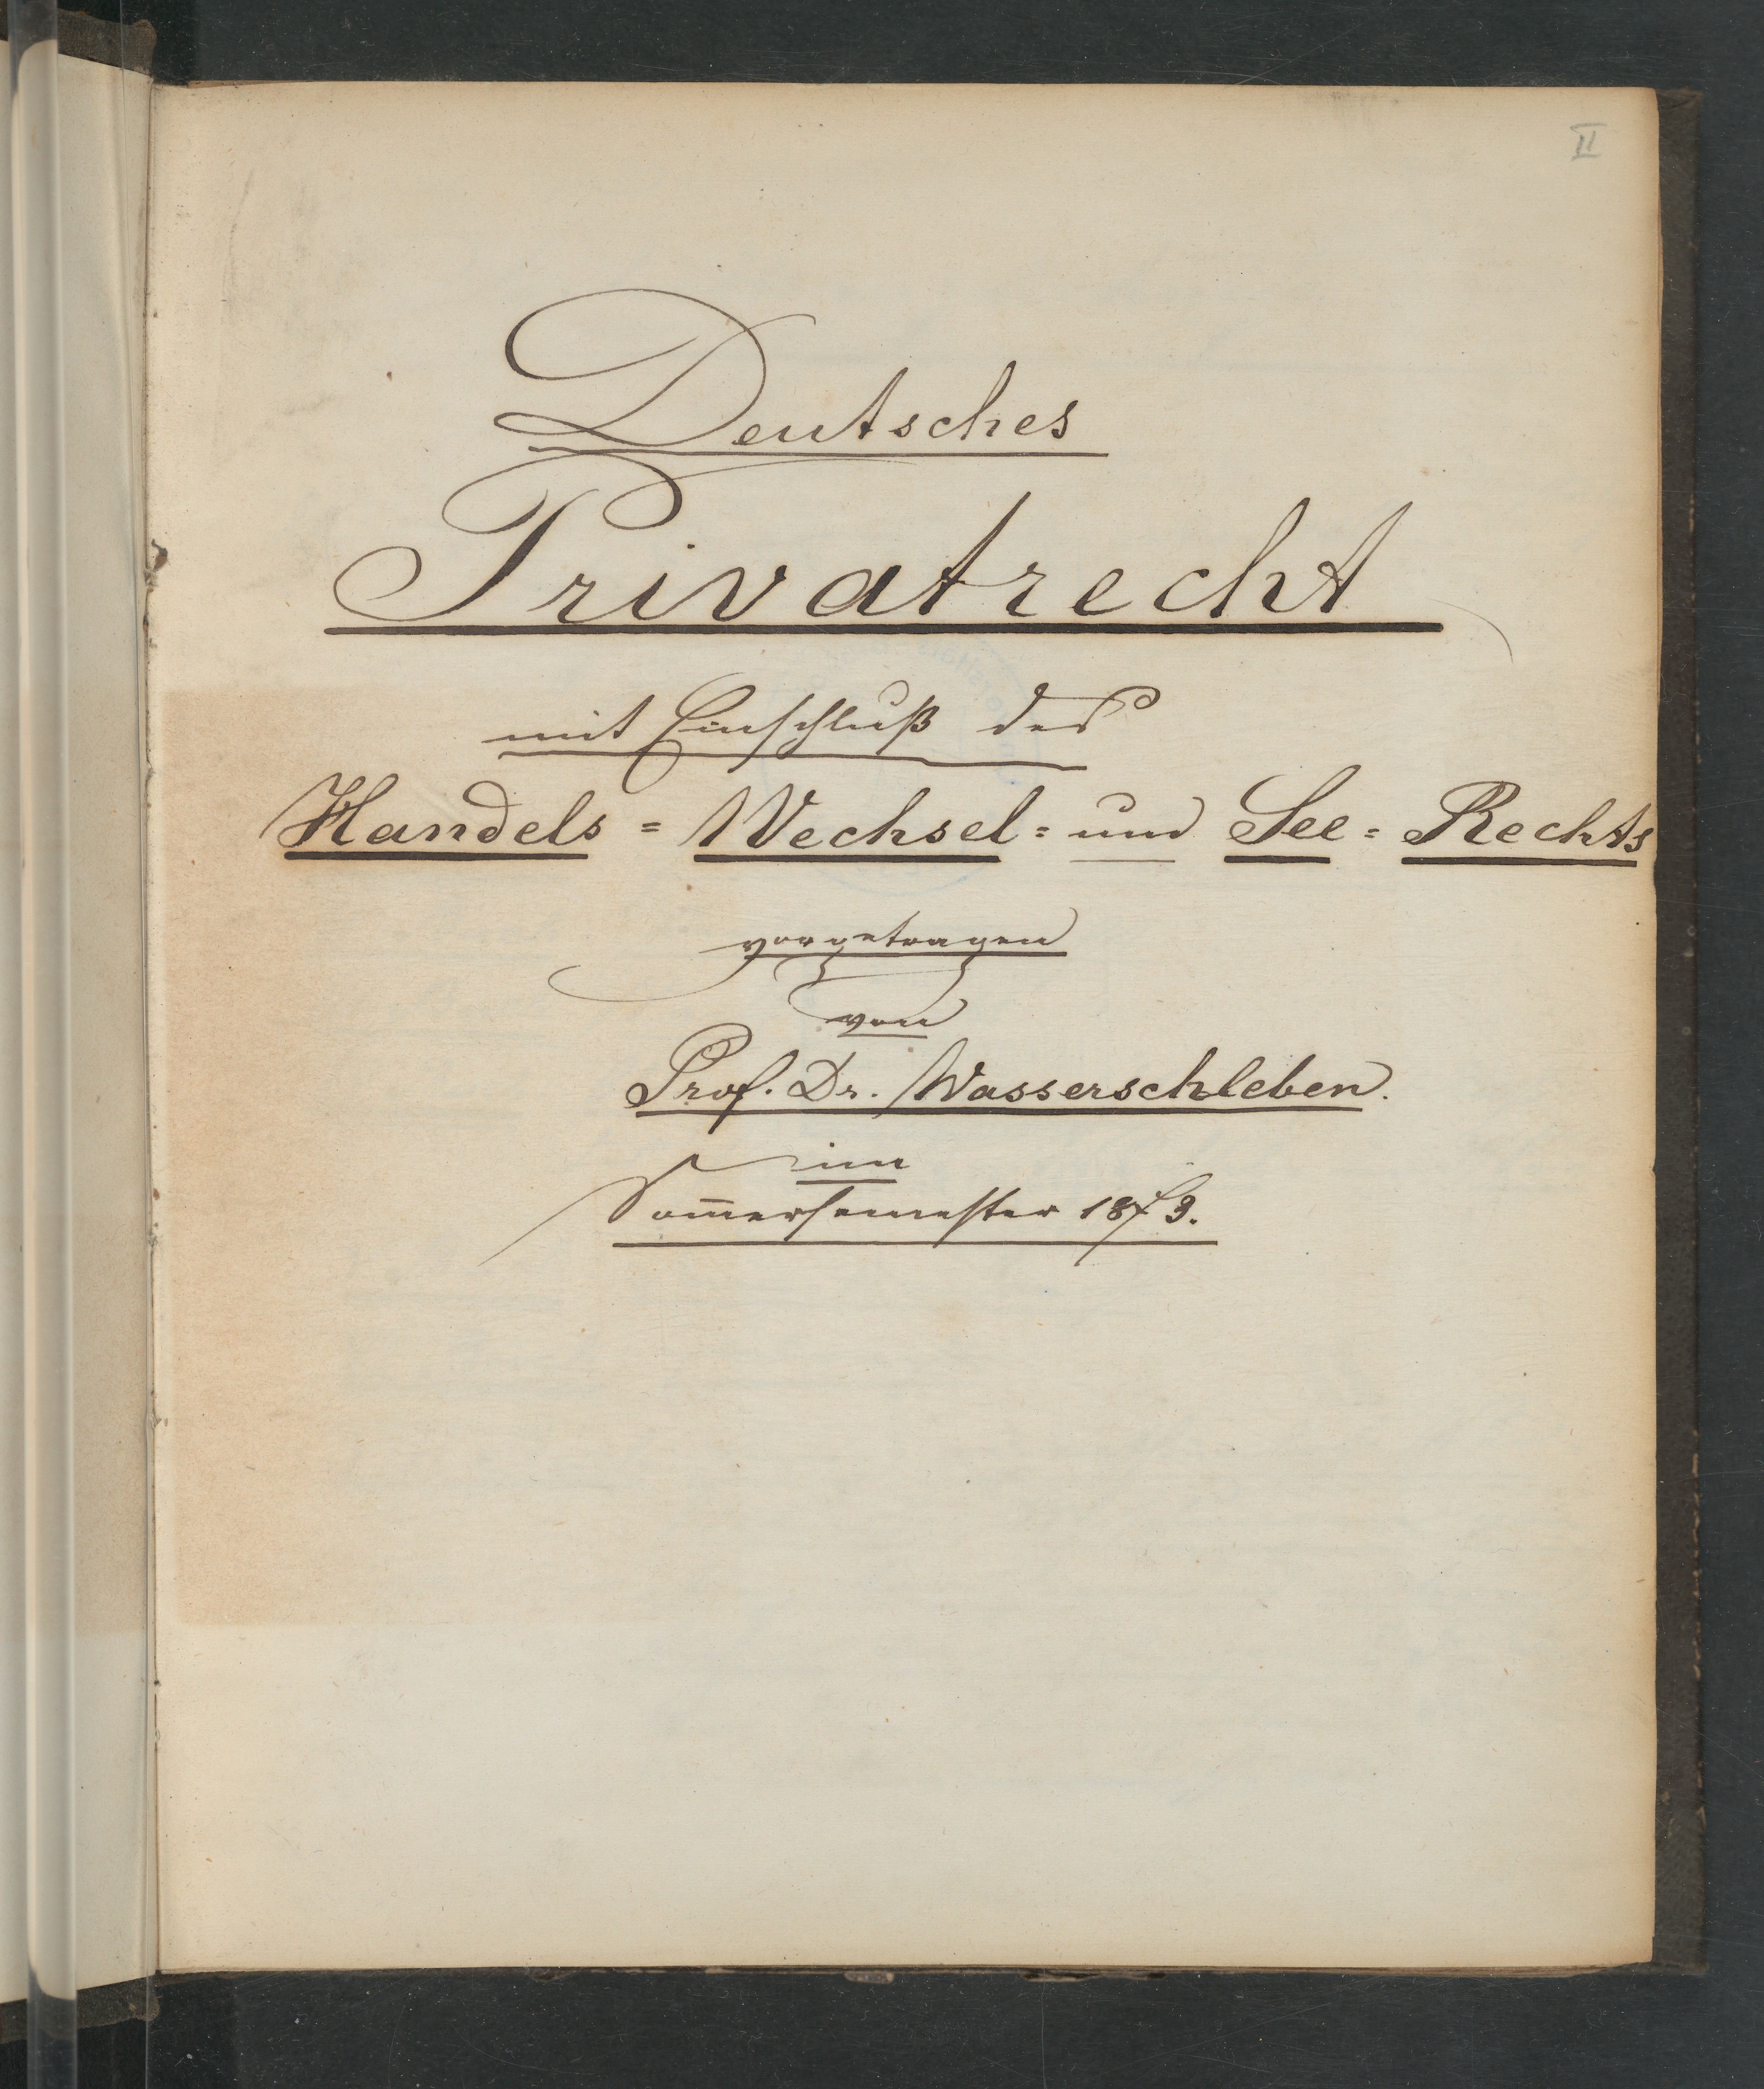 II
Deutsches
Privatrecht
mit Einschluß des
Handels = Wechsel = und See = Rechts
vorgetragen
von
Prof. Dr. Wasserschleben.
im
Som̅ersemester 1873.